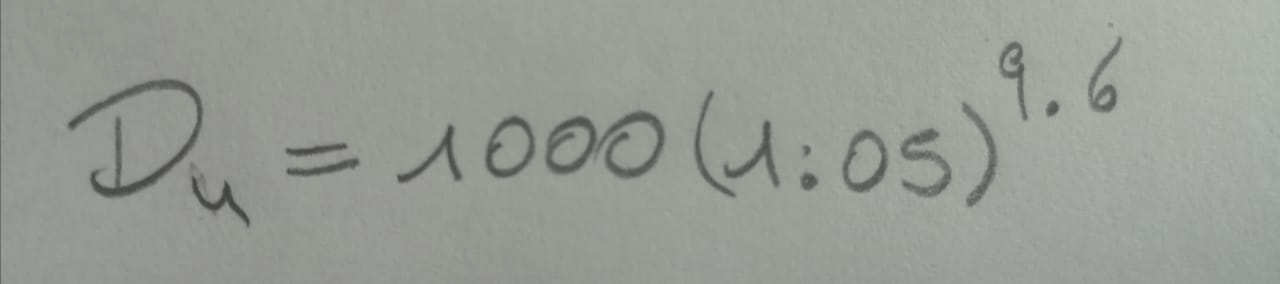 Du = 1000(1:05)^9.6